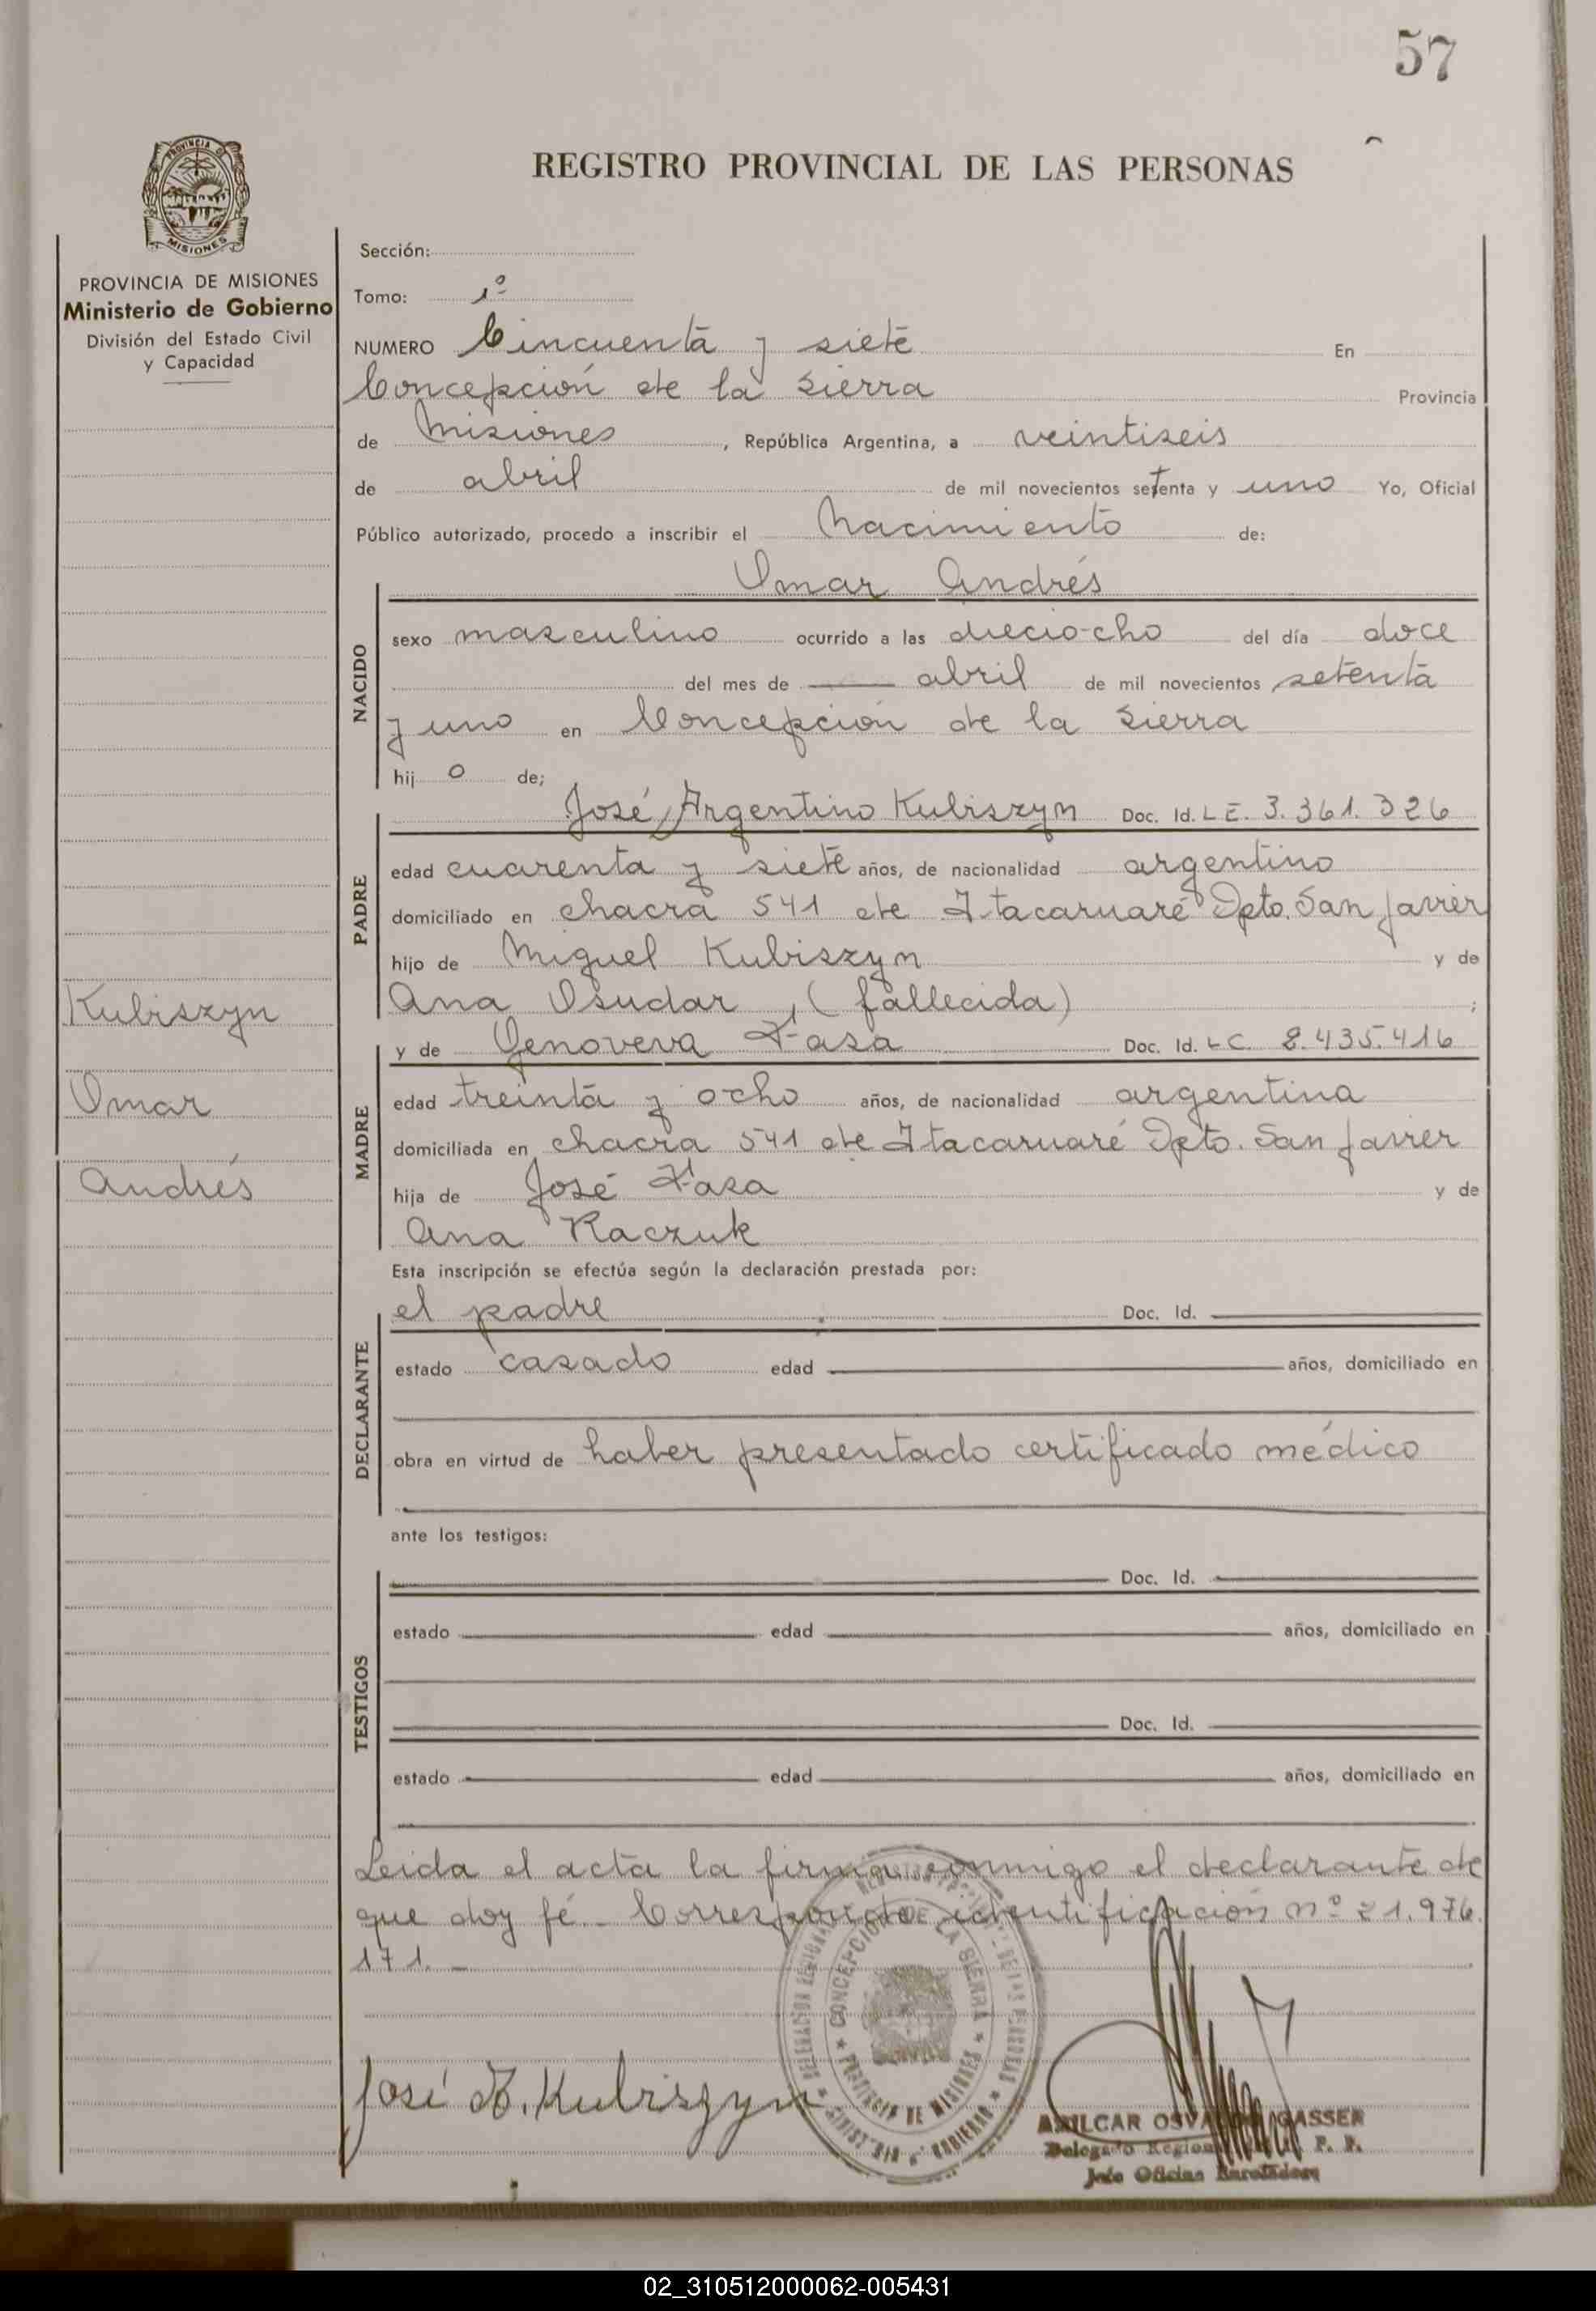 57
REGISTRO PROVINCIAL DE LAS PERSONAS
PROVINCIA DE MISIONES
Ministerio de Gobierno
División del Estado Civil
y Capacidad
Kubiszyn
Omar
Andrés
Sección:
Tomo: 1º
NUMERO Cincuenta y siete En
Concepción de la Sierra Provincia
de Misiones, República Argentina, a veintiseis
de abril de mil novecientos setenta y uno Yo, Oficial
Público autorizado, procedo a inscribir el Nacimiento de:
Omar Andrés
NACIDO
sexo masculino ocurrido a las dieciocho del día doce
del mes de abril de mil novecientos setenta
y uno en Concepción de la Sierra
hijo de;
PADRE
José Argentino Kubiszyn Doc. Id. L E. 3.361.326
edad cuarenta y siete años, de nacionalidad argentino
domiciliado en chacra 541 de Itacaruaré Dpto. San Javier
hijo de Miguel Kubiszyn y de
Ana Osudar (fallecida) ;
MADRE
y de Genoveva Fasa Doc. Id. L C. 8.435.416
edad treinta y ocho años, de nacionalidad argentina
domiciliada en chacra 541 de Itacaruaré Dpto. San Javier
hija de José Fasa y de
Ana Raczuk
Esta inscripción se efectúa según la declaración prestada por:
DECLARANTE
el padre Doc. Id.
estado casado edad años, domiciliado en
obra en virtud de haber presentado certificado médico
ante los testigos:
TESTIGOS
Doc. Id.
estado edad años, domiciliado en
Doc. Id.
estado edad años, domiciliado en
Leida el acta la firma conmigo el declarante de
que doy fé._ Corresponde identificación nº 21.976.
171._
José A. Kubiszyn
CONCEPCION DE LA SIERRA
PROVINCIA DE MISIONES
AMILCAR OSVALDO GASSER
Delegado Regional R. P. P.
Jefe Oficina Enroladora
02_310512000062-005431